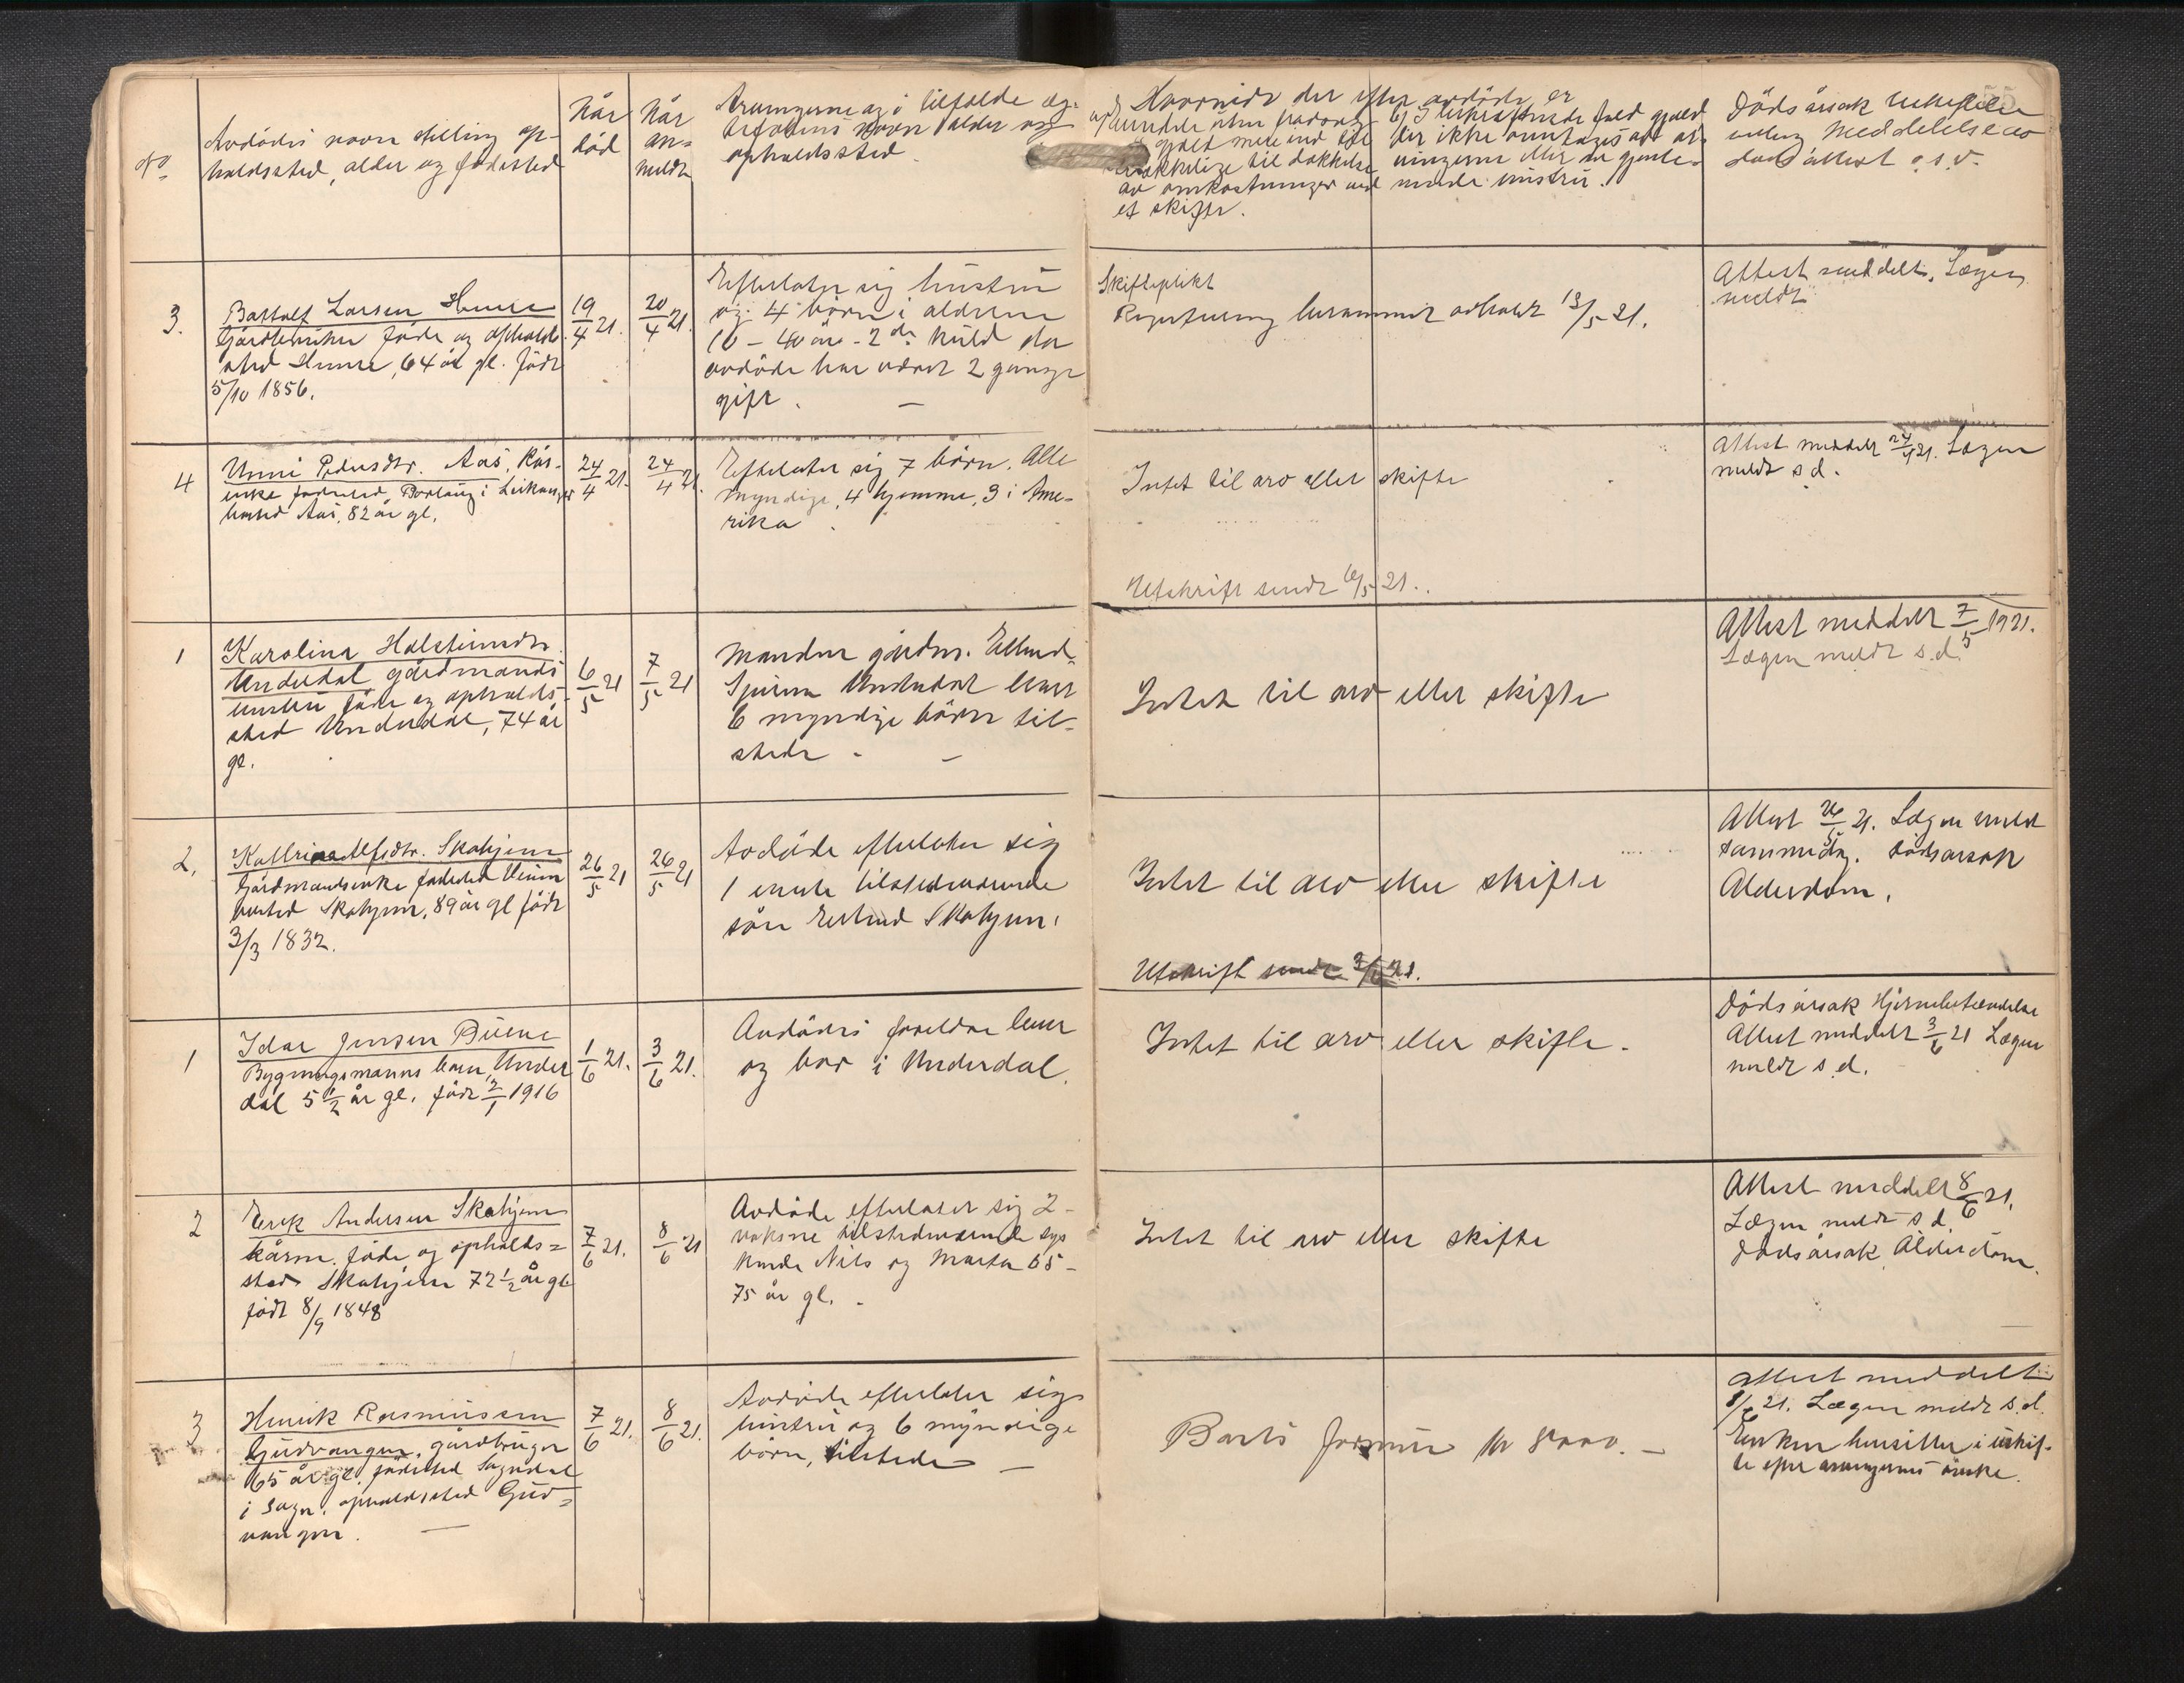 No
Avdødes navn stilling op-
holdssted, alder og fødested
Når
død
Når
an-
meldt
Arvingerne og i tilfælde
navn alder og
opholdssted.
Hvorvidt der efter avdøde er
til dækkelse
av omkostninger ved
et skifte.
der ikke antages at ar-
vingerne eller den gjenle-
vende hustru.
Dødsårsak
Meddelelse av
dødsattest o.s.v.
3.
Larsen
Gårdbruker føde og opholds-
sted 64 år gl. født
5/10 1856.
19/4 21.
20/4 21.
Efterlater sig hustru
og 4 børn i alderen
10 - 40 år - 2de kuld da
avdøde har været 2 gange
gift. —
Skiftepligt
Registrering berammet avholdt 13/5 21.
Attest meddelt. Lægen
meldt
4
Unni Pedersdtr. Aas, Kår-
enke fødested i Leikanger
bosted Aas, 82 år gl.
24/4 21.
24/4 21.
Efterlater sig 7 børn. Alle
myndige, 4 hjemme, 3 i Ame-
rika
Intet til arv eller skifte
Utskrift sendt 6/5 21.
Attest meddelt 24/4 21. Lægen
meldt s.d.
1
Karolina Halsteinsdtr.
Underdal gårdmands
hustru føde og opholds-
sted Underdal, 74 år
gl.
6/5 21
7/5 21
Manden gårdm.
Underdal lever
6 myndige børn til-
stede. —
Intet til arv eller skifte
Attest meddelt 7/5 1921.
Lægen meldt s.d.
2.
Kathrina Alfsdtr. Skahjem
Gårdmandsenke fødested
bosted Skahjem, 89 år gl født
3/3 1832.
26/5 21
26/5 21
Avdøde efterlater sig
1 eneste tilstedeværende
søn Erlend Skahjem.
Intet til arv eller skifte
Utskrift sendt
Attest 26/5 21. Lægen meldt
samme dag. Dødsårsak
Alderdom.
1
Idar Jensen Buene
Bygningsmanns barn, Under
dal 5 1/2 år gl. født 2/1 1916
1/6 21.
3/6 21.
Avdødes foreldre lever
og bor i Underdal.
Intet til arv eller skifte.
Dødsårsak Hjernebetændelse
Attest meddelt 3/6 21 Lægen
meldt s.d.
2
Erik Andersen Skahjem
kårm. føde og opholds=
sted Skahjem 72 1/2 år gl
født 8/9 1848
7/6 21.
8/6 21
Avdøde efterlater sig 2 -
voksne tilstedeværende søs
kende Nils og Marta 65 -
75 år gl. -
Intet til arv eller skifte
Attest meddelt 8/6 21.
Lægen meldt s.d.
Dødsårsak Alderdom.
3
Henrik Rasmussen
Gudvangen, gårdbruger
65 år gl. fødested Sogndal
i Sogn. opholdssted Gud=
vangen. —
7/6 21.
8/6 21.
Avdøde efterlater sig
hustru og 6 myndige
børn, tilstede —
Boets formue kr 8000. —
Attest meddelt
8/6 21. Lægen meldt s.d.
Enken hensitter i uskif-
te efter arvingernes ønske.